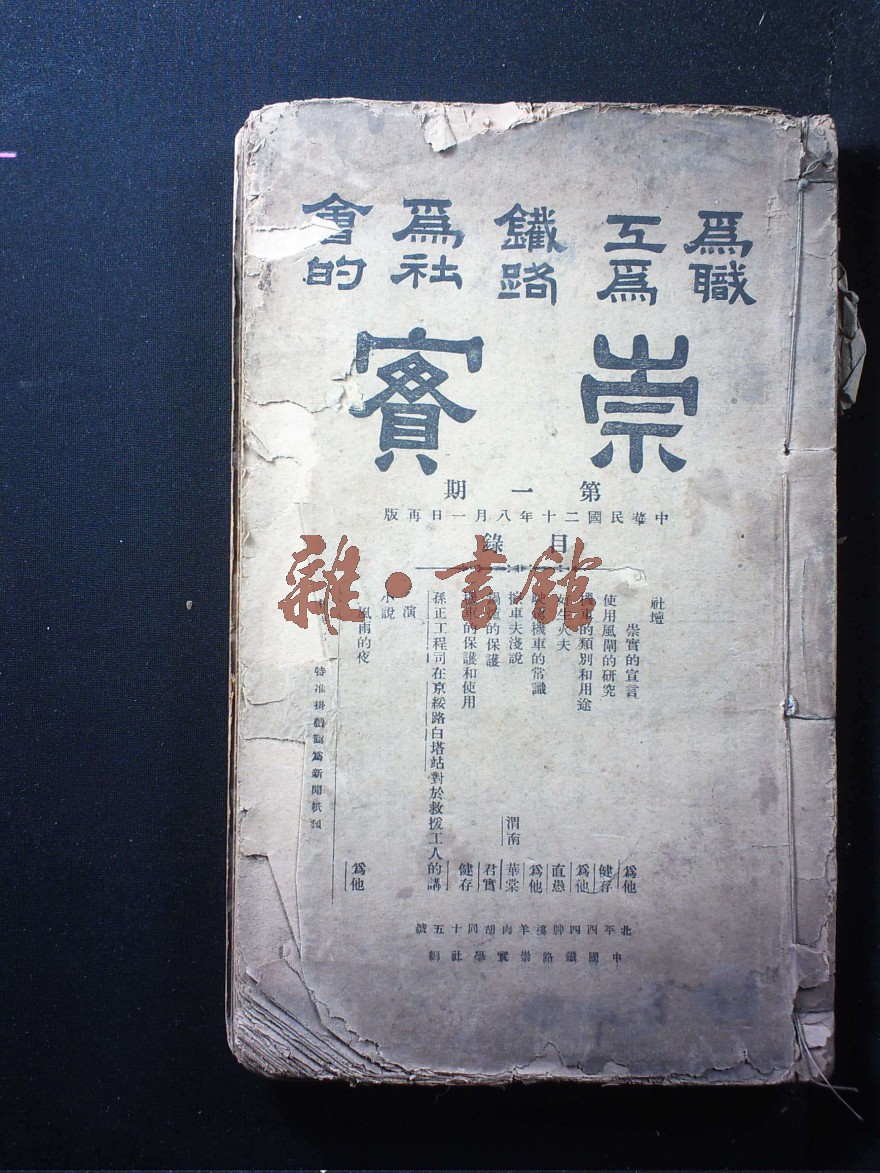 爲職工爲鐵路爲社會的
崇實
第一期
中華民國二十年八月一日再版
目錄
社壇
崇實的宣言 爲他
使用風閘的研究 健存
機車的類別和用途 爲他
生火夫 直愚
機車的常識 爲他
車夫淺說 渭南 華棠
的保護 君實
的保護和使用 健存
孫正工程司在京綏路白塔站對於救援工人的講演
小說
風雨的夜 爲他
特准掛號認爲新聞紙類
北平西四牌樓羊肉胡同十五號
中國鐵路崇實學社編
雜·書館